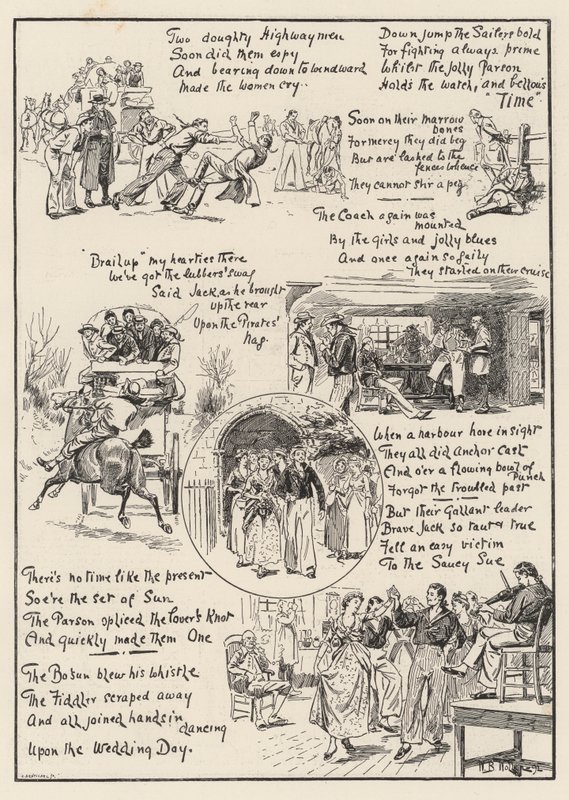 Two doughty Highwaymen
Soon did them espy
And bearing down to windward
Made the women cry..
Down jump the Sailors bold
For fighting always prime
Whilst the Jolly Parson
Holds the watch, and bellows
"Time".
Soon on their marrow
bones
For mercy they did beg
But are lashed to the
fences whence
They cannot stir a peg
The Coach again was
mounted
By the girls and jolly blues
And once again so gaily
They started on their cruise
"Brail up" my hearties there
We've got the lubbers' swag
Said Jack, as he brought
up the rear
Upon the Pirates'
nag.
When a harbour hove in sight
They all did Anchor Cast
And o'er a flowing bowl of
Punch
Forgot the troubled past
But their Gallant leader
Brave Jack so taut & true
Fell an easy victim
To the Saucy Sue
There's no time like the present
So e're the set of Sun
The Parson spliced the lover's Knot
And quickly made them One
The Bo'sun blew his whistle
The Fiddler scraped away
And all joined hands in
dancing
Upon the Wedding Day.